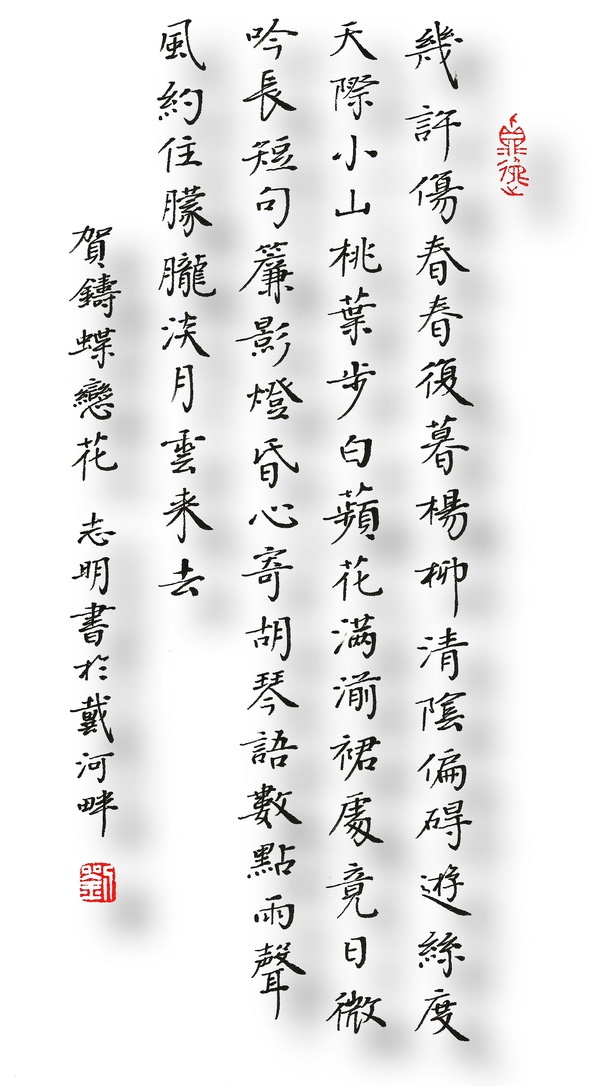 幾許傷春春復暮楊柳清陰偏碍遊絲度
天際小山桃葉步白蘋花满湔裙處竟日微
吟長短句簾影燈昏心寄胡琴語數點雨聲
風約住朦朧淡月雲来去
賀鑄蝶戀花 志明書於戴河畔
劉